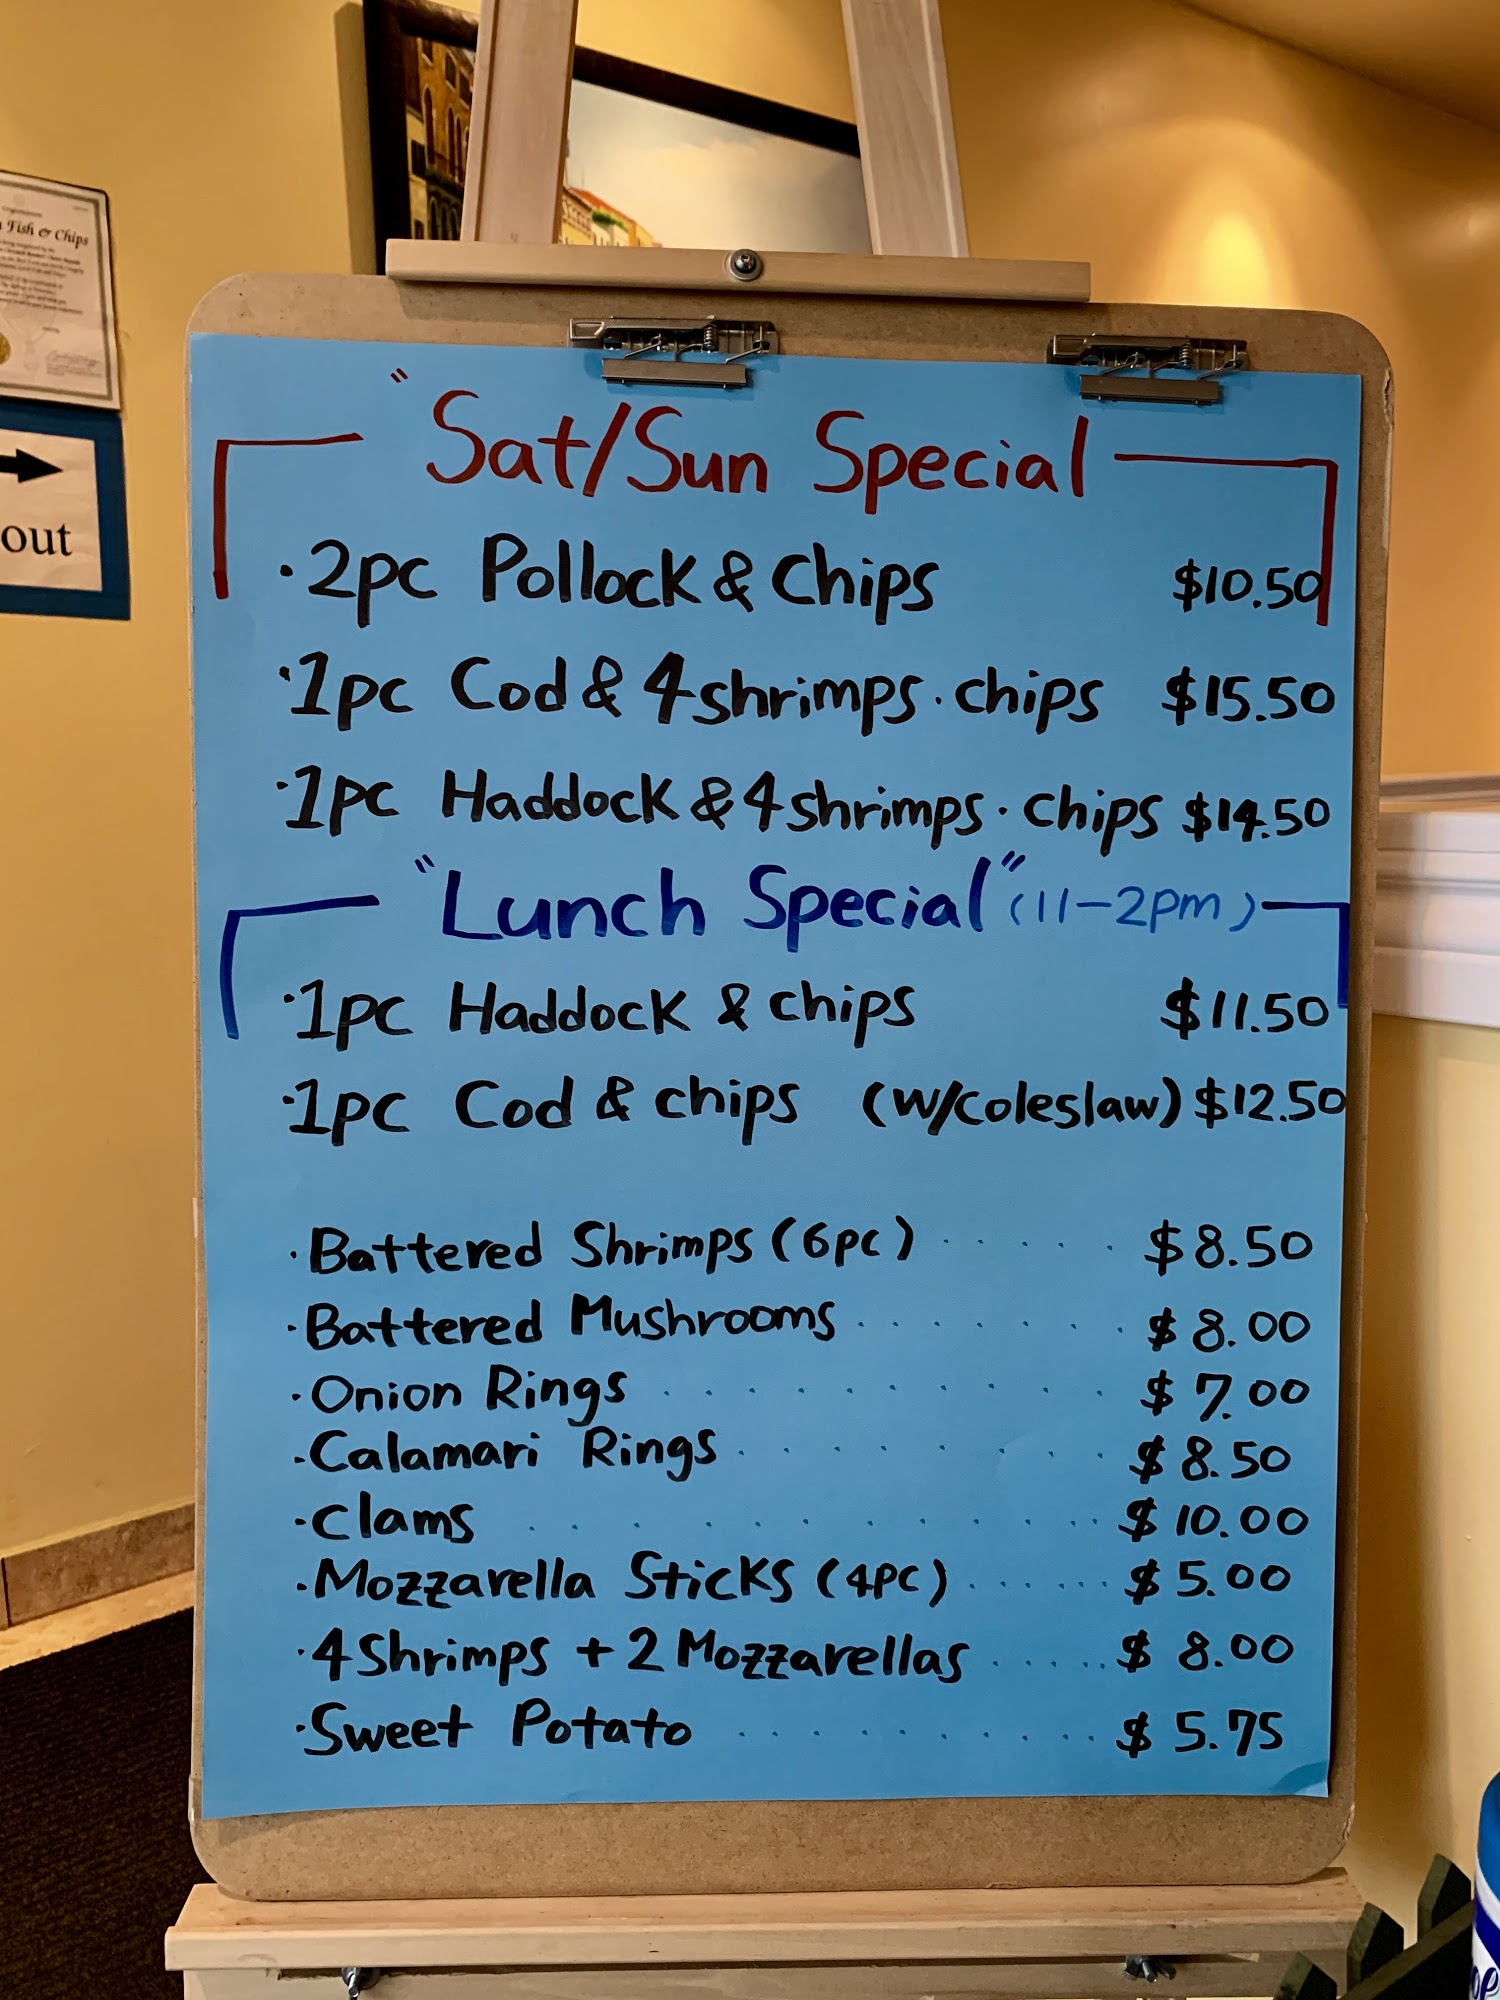 Fish & Chips
out
"Sat/Sun Special
· 2pc Pollock & Chips $10.50
· 1pc Cod & 4 shrimps · chips $15.50
· 1pc Haddock & 4 shrimps · chips $14.50
"Lunch Special" (11-2pm)
· 1pc Haddock & chips $11.50
· 1pc Cod & chips (w/coleslaw) $12.50
· Battered Shrimps (6pc) ..... $8.50
· Battered Mushrooms ....... $8.00
· Onion Rings ....... $7.00
· Calamari Rings ....... $8.50
· Clams ........... $10.00
· Mozzarella Sticks (4pc) ...... $5.00
· 4 Shrimps + 2 Mozzarellas ..... $8.00
· Sweet Potato .......... $5.75